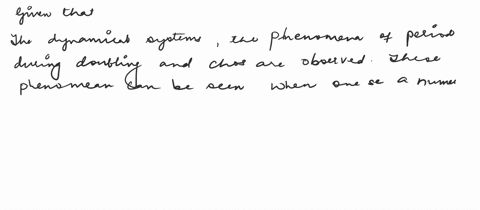 Given that
The dynamical systems, the phenomena of period
during doubling and chos are observed. These
phenomean can be seen when one se a numer